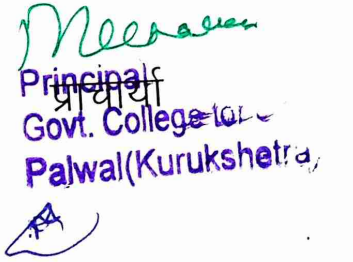 Principal
प्राचार्या
Govt. College
Palwal(Kurukshetra)